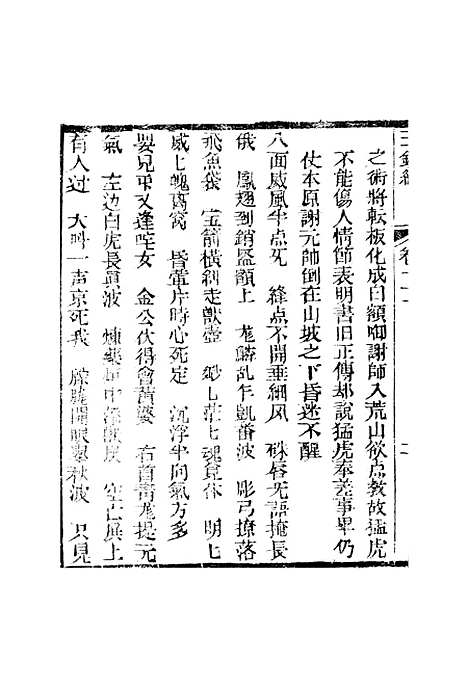 之術將転板化成白額啣謝師入荒山欲点教故猛虎
不能傷人情節表明書旧正傳却說猛虎奉差事畢仍
仗本原謝元師倒在山坡之下昏迷不醒
八面威風半点死 絳点不開垂細风 硃唇无語掩長
俄 鳳翅到銷盔額上 龙鱗乱乍凱番波 彫弓撩落
飛魚袋 宝箭橫斜走獸壺 渺七茫七魂見休 明七
威七魄离窩 昏雷片時心死定 沉浮半向氣方多
嬰兒弔又逢咤女 金公伏得會黃婆 右首青龙提元
氣 左边白虎長真波 煉藥炉中 空亡與上
有人过 大叫一声京死我 朦朧開眼翠秋波 只見